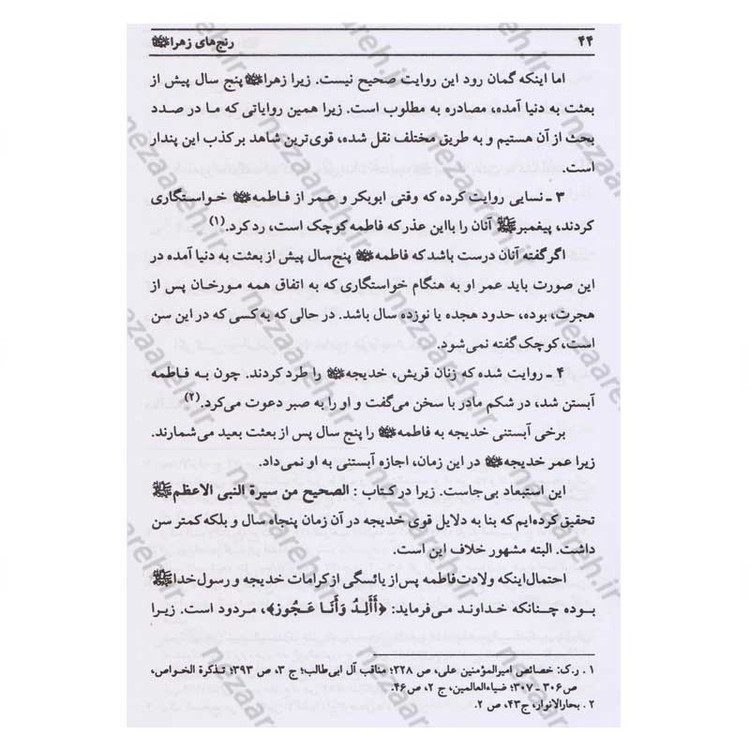 ۴۴ رنج‌های زهرا
اما اینکه گمان رود این روایت صحیح نیست. زیرا زهرا پنج سال پیش از
بعثت به دنیا آمده، مصادره به مطلوب است. زیرا همین روایاتی که ما در صدد
بحث از آن هستیم و به طریق مختلف نقل شده، قوی‌ترین شاهد بر کذب این پندار
است.
۳ ـ نسایی روایت کرده که وقتی ابوبکر و عمر از فاطمه خواستگاری
کردند، پیغمبر ﷺ آنان را با این عذر که فاطمه کوچک است، رد کرد.(۱)
اگر گفته آنان درست باشد که فاطمه پنج‌سال پیش از بعثت به دنیا آمده در
این صورت باید عمر او به هنگام خواستگاری که به اتفاق همه مورخان پس از
هجرت، بوده، حدود هجده یا نوزده سال باشد. در حالی که به کسی که در این سن
است، کوچک گفته نمی‌شود.
۴ ـ روایت شده که زنان قریش، خدیجه را طرد کردند. چون به فاطمه
آبستن شد، در شکم مادر با سخن می‌گفت و او را به صبر دعوت می‌کرد.(۲)
برخی آبستنی خدیجه به فاطمه را پنج سال پس از بعثت بعید می‌شمارند.
زیرا عمر خدیجه در این زمان، اجازه آبستنی به او نمی‌داد.
این استبعاد بی‌جاست. زیرا در کتاب : الصحیح من سیرة النبی الاعظم ﷺ
تحقیق کرده‌ایم که بنا به دلایل قوی خدیجه در آن زمان پنجاه سال و بلکه کمتر سن
داشت. البته مشهور خلاف این است.
احتمال اینکه ولادت فاطمه پس از یائسگی از کرامات خدیجه و رسول خدا ﷺ
بوده چنانکه خداوند می‌فرماید: ﴿أَأَلِدُ وَأَنَا عَجُوز﴾، مردود است. زیرا
۱ . ر.ک: خصائص امیرالمؤمنین علی، ص ۲۲۸؛ مناقب آل ابی‌طالب؛ ج ۳، ص ۳۹۳؛ تذکرة الخواص،
ص ۳۰۶ ـ ۳۰۷؛ ضیاءالعالمین، ج ۲، ص۴۶.
۲ . بحارالانوار، ج۴۳، ص ۲.
nezaareh.ir